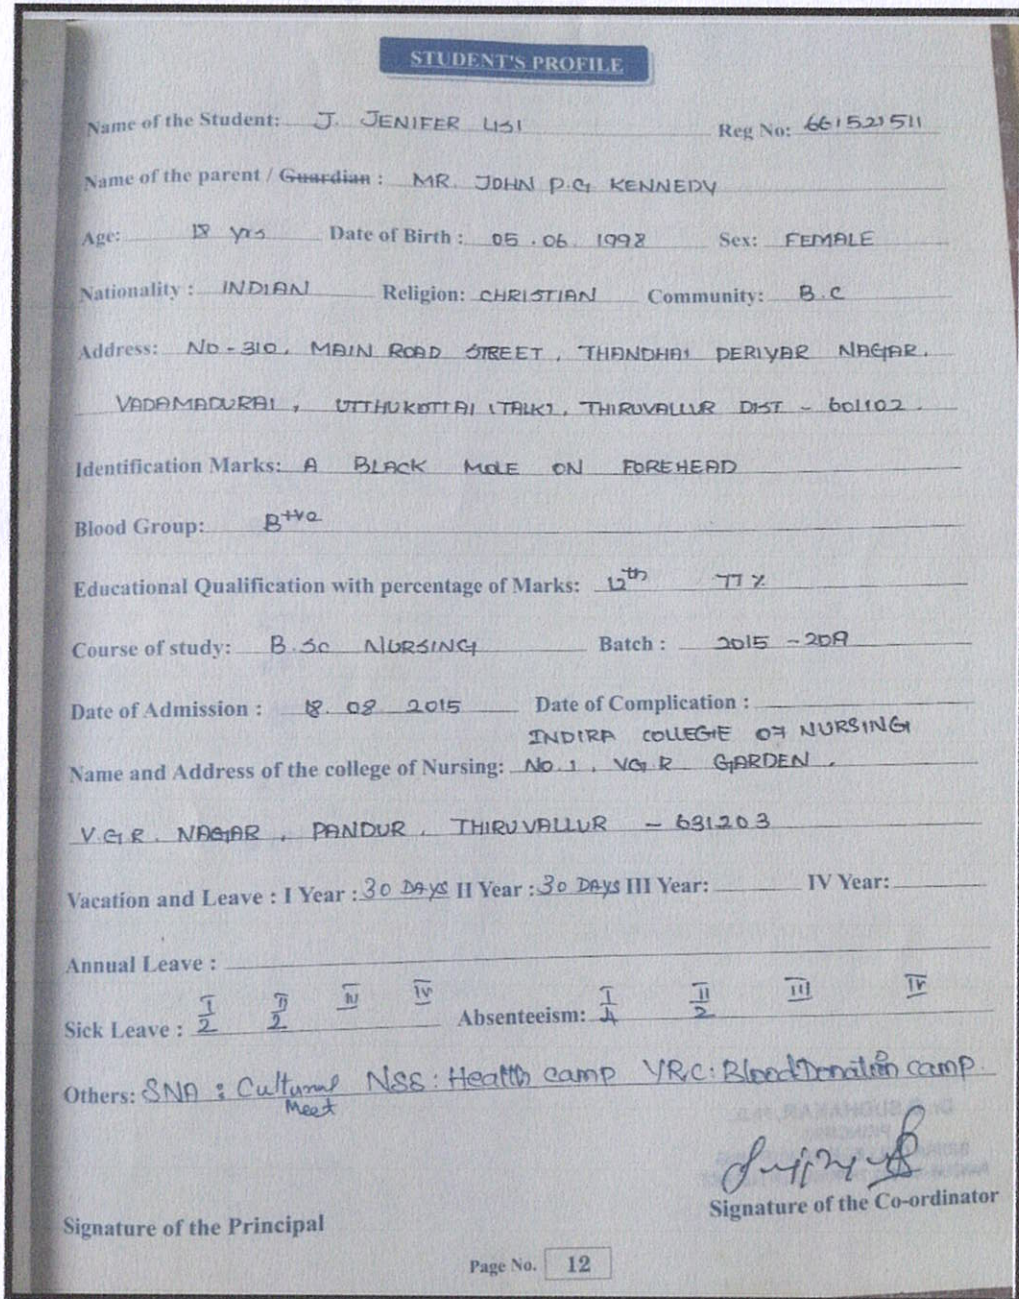 STUDENT'S PROFILE
Name of the Student: J. JENIFER LISI Reg No: 661521511
Name of the parent / Guardian : MR. JOHN P.G KENNEDY
Age: 18 yrs Date of Birth : 05.06.1998 Sex: FEMALE
Nationality : INDIAN Religion: CHRISTIAN Community: B.C
Address: NO-310, MAIN ROAD STREET, THANDHAI PERIYAR NAGAR,
VADAMADURAI, UTTHUKOTTAI (TALK), THIRUVALLUR DIST - 601102.
Identification Marks: A BLACK MOLE ON FOREHEAD
Blood Group: B+ve
Educational Qualification with percentage of Marks: 12th 77%
Course of study: B.Sc NURSING Batch : 2015 - 2019
Date of Admission : 18.08.2015 Date of Complication :
INDIRA COLLEGE OF NURSING
Name and Address of the college of Nursing: No.1, VGR GARDEN,
V.G.R. NAGAR, PANDUR, THIRUVALLUR - 631203
Vacation and Leave : I Year : 30 DAYS II Year : 30 DAYS III Year: IV Year:
Annual Leave :
I II III IV I II III IV
Sick Leave : 2 2 Absenteeism: 4 2
Others: SNA : Cultural NSS : Health camp YRC : Blood Donation camp.
Meet
Signature of the Co-ordinator
Signature of the Principal
Page No. 12